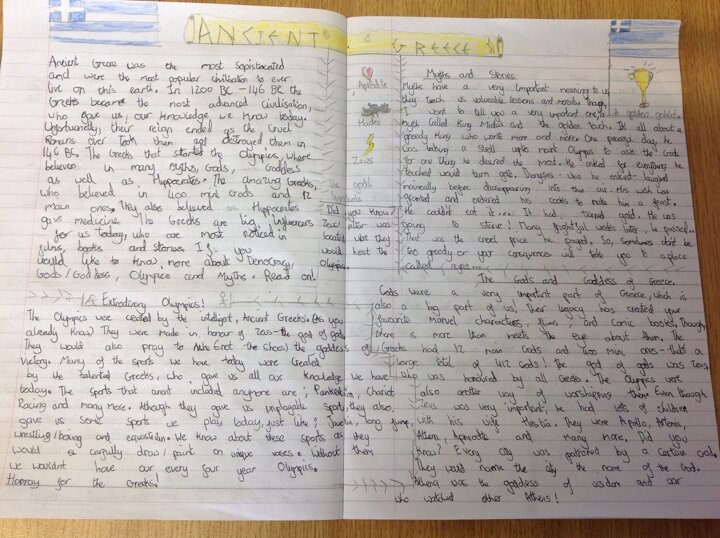 ANCIENT GREECE
Ancient Greece was the most sopistacated
and were the most popular civilisation to ever
live on this earth. In 1200 BC - 146 BC the
Greeks became the most advanced civilisation,
who gave us, our knowledge we know today.
Unfortunatly, their reign ended as the cruel
Romans over took them and destroyed them in
146 BC. The Greeks that started the Olympics, where
believers in many Myths, Gods, Goddess
as well as Hippocrates. The amazing Greeks,
who believed in 400 mini Gods and 12
main ones. They also believed in Hippocrates
gave medicine. The Greeks are big influencers
for us today, who are most noticed in
films, books and stories. If you
would like to know more about Democracy,
Gods/Goddess, Olympics and Myths - Read on!
Extrodinary Olympics!
The Olympics were created by the intelligent, Ancient Greeks. (As you
already know) They were made in honour of Zeus - the god of gods
They would also pray to Nike (not the shoes) the goddess of
Victory. Many of the sports we have today were created
by the talented Greeks, who gave us all our knowledge we have
today. The sports that arent included anymore are; Pankration, Chariot
Racing and many more. Although they gave us unplayable sports, they also
gave us some sports we play today, just like; Javelin, long jump,
wrestling/boxing and equestrian. We know about these sports as they
would carfully draw/paint on unique vases. Without them
we wouldnt have our every four year Olympics.
Hooray for the Greeks!
Aphrodite
Hades
Zeus
gods
Did you know?
Zeus
located
what they
would host the
Olympics
A golden goblet
Myths and Stories
Myths have a very important meaning to us,
they teach us valuable lessons and morals. Though,
I want to tell you a very important one, a
Myth called King Midas and the golden touch. It's all about a
greedy King who wanted more and more. One peaceful day, he
was taking a stroll upto mount Olympus to ask the Gods
for one thing he desired the most. He asked for everything he
touched would turn gold. Dionysus - who he asked - laughed
before disappearing into thin air. His wish was
granted and ordered his cooks to make him a feast.
He couldnt eat it.... It had turned gold. He was
going to starve! Many frightful weeks later, he passed...
That was the cruel price he payed. So, sometimes dont be
too greedy or your consequences will take you to a place
called
The Gods and Goddess of Greece
Gods were a very important part of Greece, which is
also a big part of us. Their legacy has created your
favourite marvel characters, films, and comic books. Though,
there is more than meets the eye about them. The
Greeks had 12 main Gods and 400 more ones - that's a
large total of 412 Gods! The god of gods was Zeus,
who was honoured by all Greeks. The Olympics were
also another way of worshiping them. Even though
Zeus was very important, he had lots of children
with his wife Hestia. They were Apollo, Artemis,
Athen, Aphrodite and many more. Did you
know? Every city was protected by a certain God.
They would name the city the name of the God.
Athena was the goddess of wisdom and war
who watched other Athens!